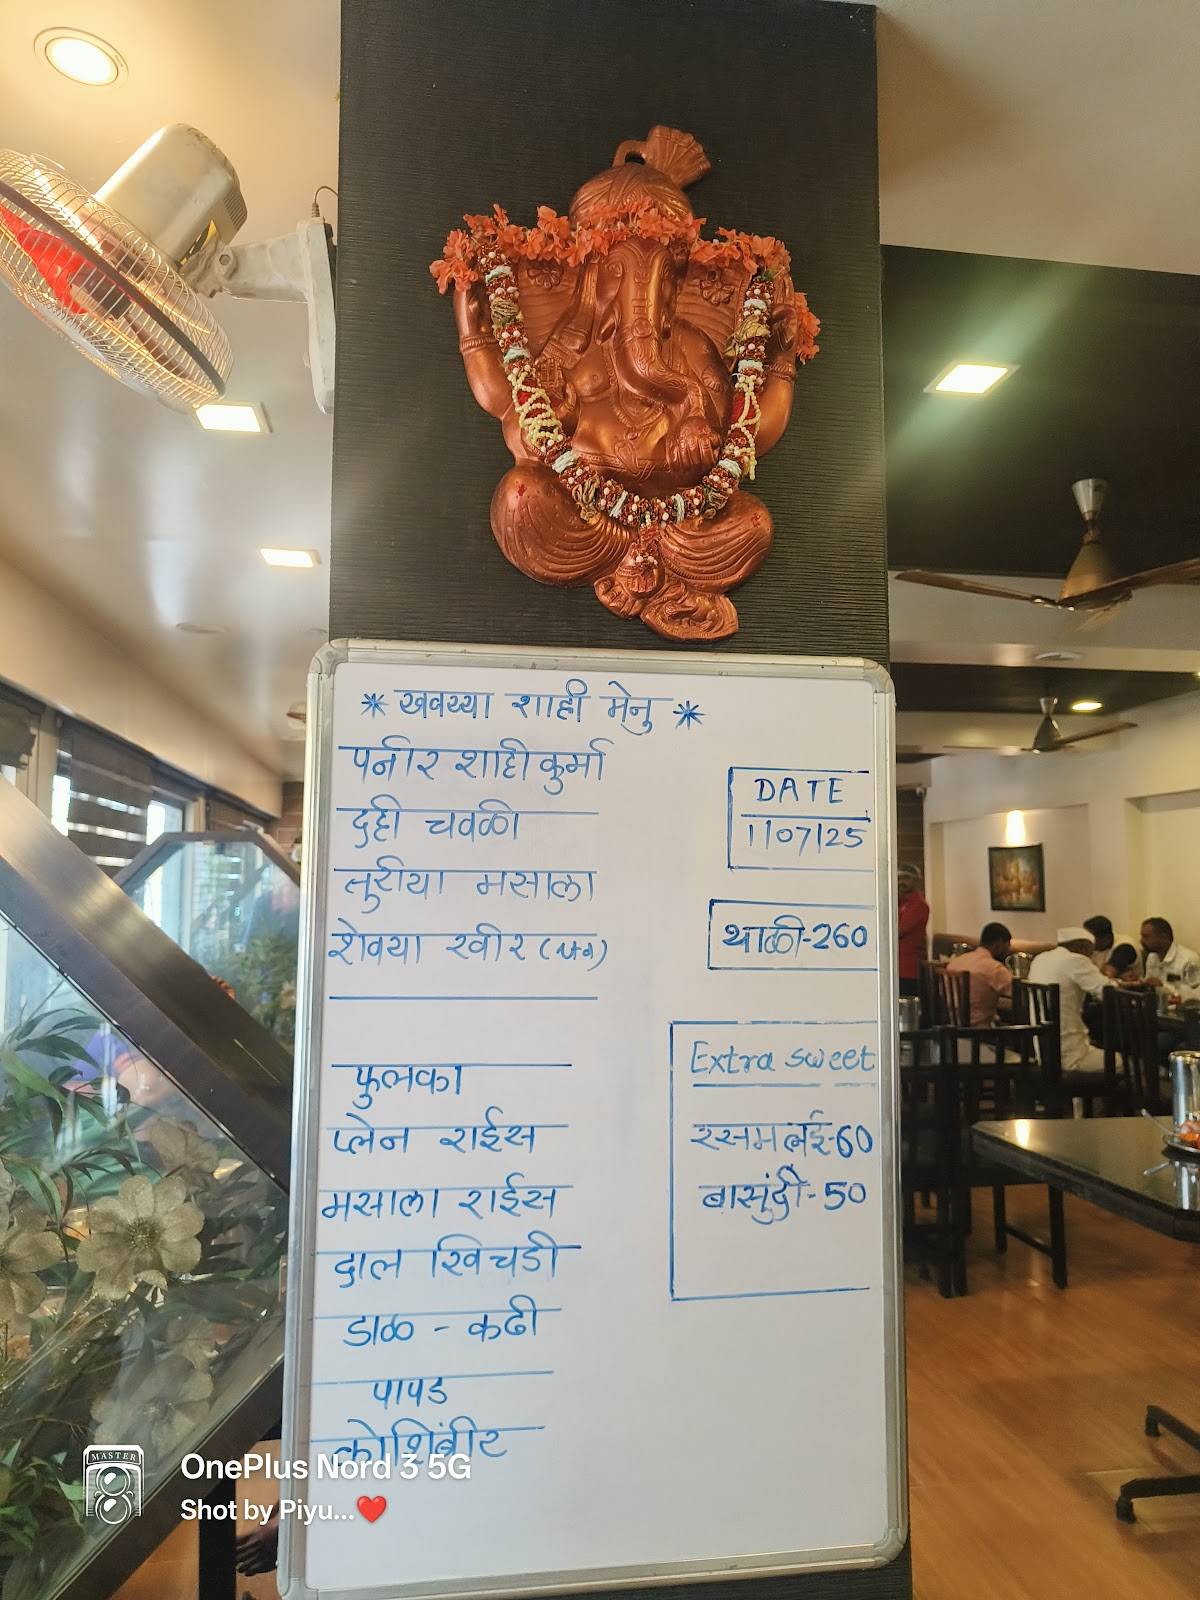 * खवय्या शाही मेनु *
पनीर शाही कुर्मा
दही चवळी
तुरीया मसाला
शेवया खीर
फुलका
प्लेन राईस
मसाला राईस
दाल खिचडी
डाळ - कढी
पापड
कोशिंबीर
DATE
1/07/25
थाळी-260
Extra sweet
रसमलई-60
बासुंदी-50
MASTER
OnePlus Nord 3 5G
Shot by Piyu...❤️